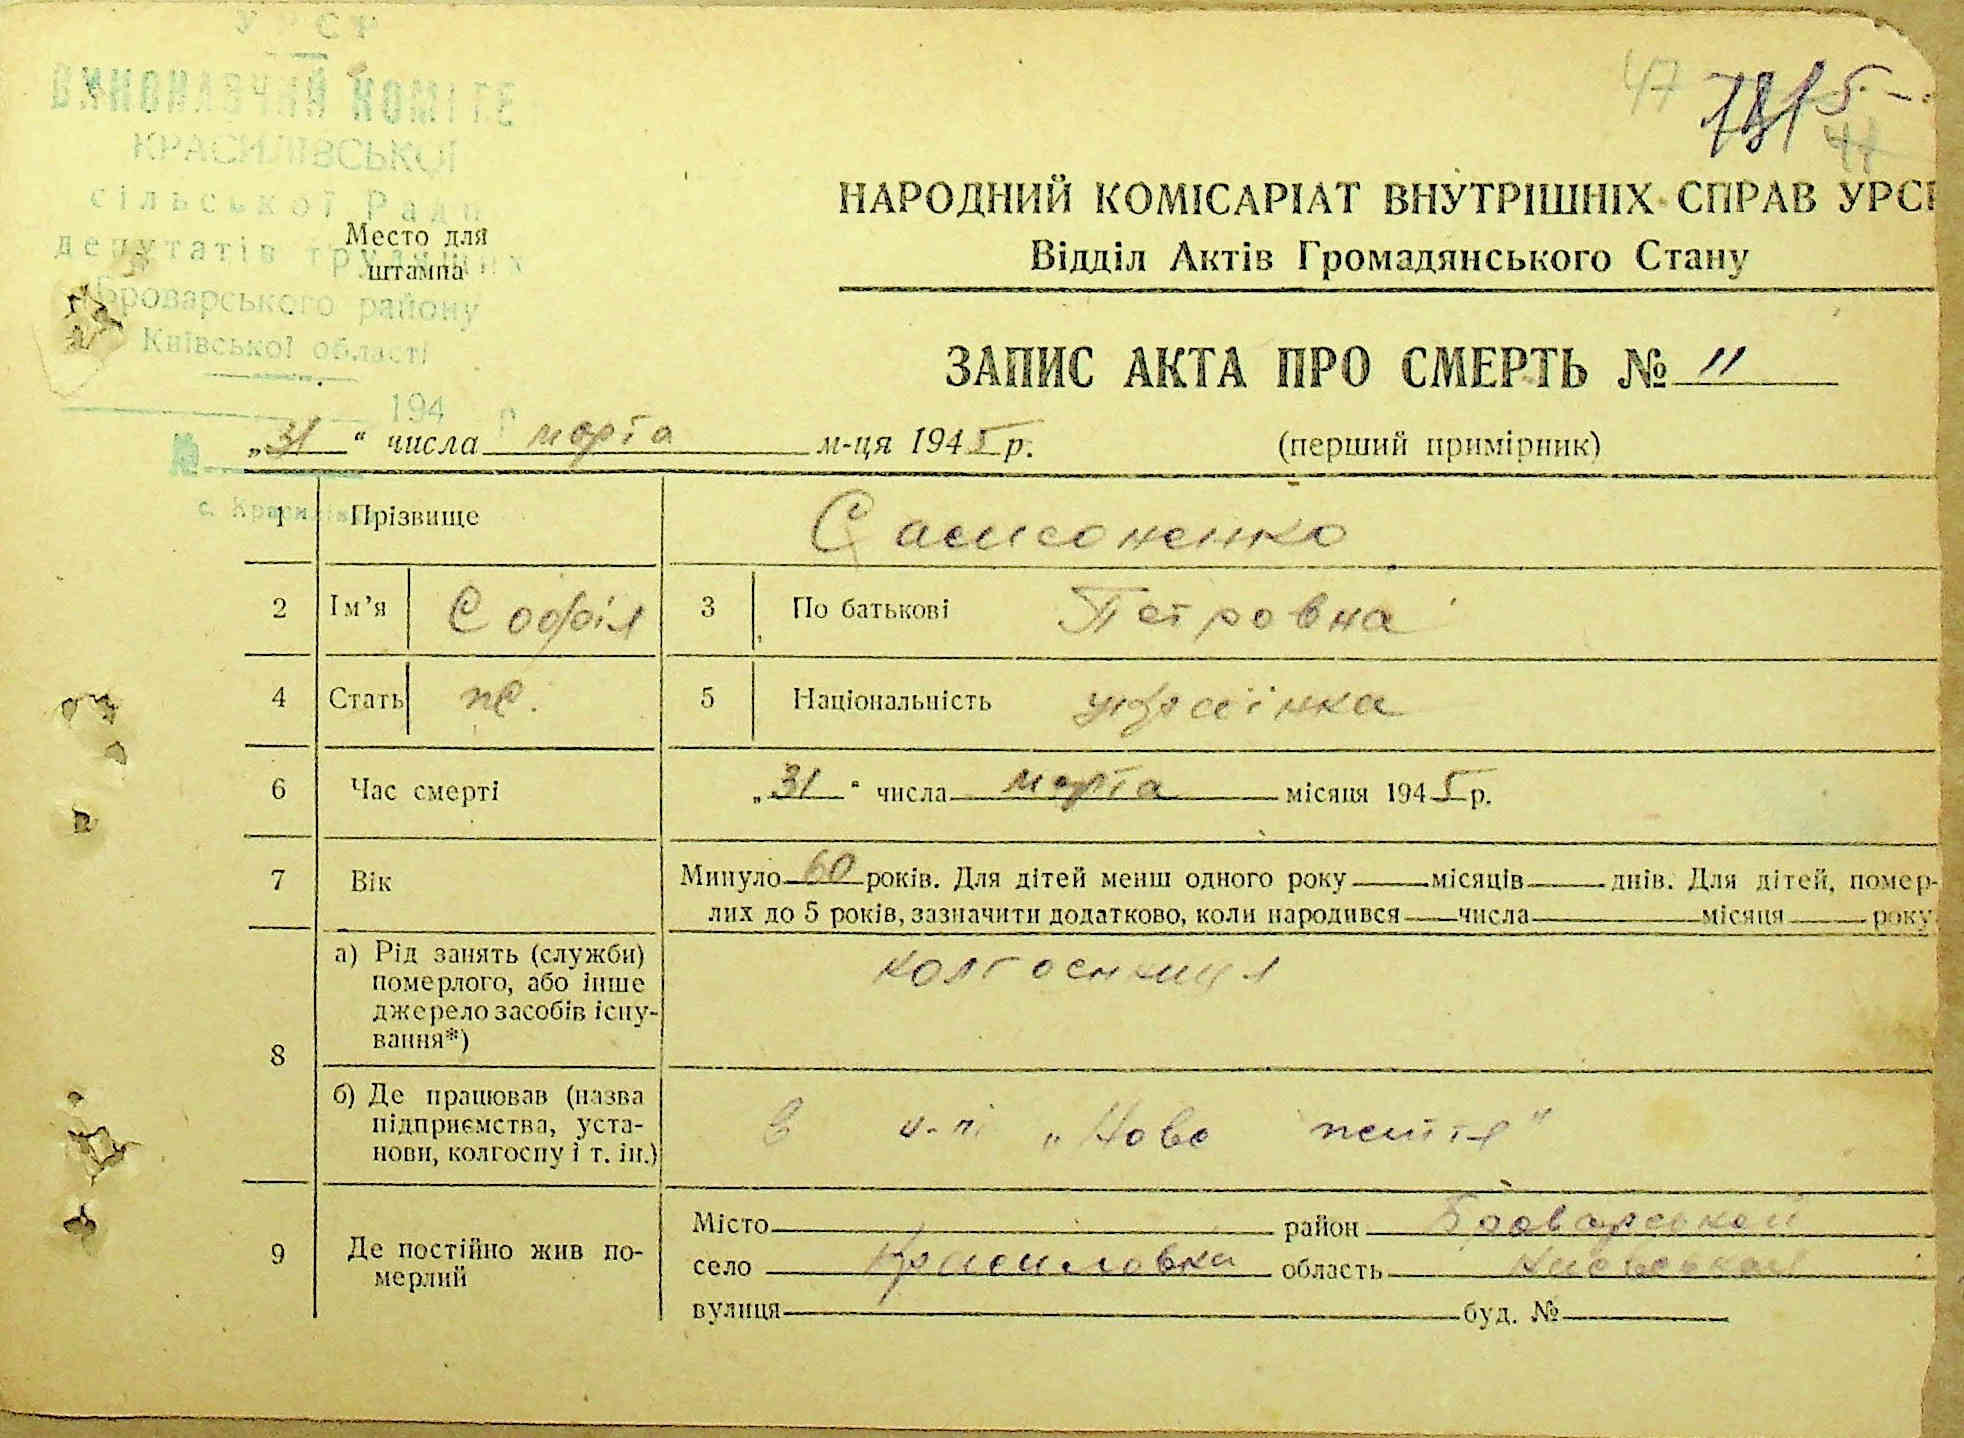 УРСР
ВИКОНАВЧИЙ КОМІТЕТ
КРАСИЛІВСЬКОЇ
сільської Ради
депутатів трудящих
Броварського району
Київської області
194 р
№
с. Красилівка
Место для
штампа
47
НАРОДНИЙ КОМІСАРІАТ ВНУТРІШНІХ СПРАВ УРСР
Відділ Актів Громадянського Стану
ЗАПИС АКТА ПРО СМЕРТЬ № 11
„31“ числа марта м-ця 1945 р.
(перший примірник)
1 Прізвище Самсоненко
2 Ім’я Софія 3 По батькові Петровна
4 Стать ж. 5 Національність українка
6 Час смерті „31“ числа марта місяця 1945 р.
7 Вік Минуло 60 років. Для дітей менш одного року місяців днів. Для дітей, помер-
лих до 5 років, зазначити додатково, коли народився числа місяця року
8 а) Рід занять (служби)
померлого, або інше
джерело засобів існу-
вання*)
колгоспниця
б) Де працював (назва
підприємства, уста-
нови, колгоспу і т. ін.)
В к-пі „Нове життя“
9 Де постійно жив по-
мерлий
Місто район Броварський
село Красиловка область Київський
вулиця буд. №